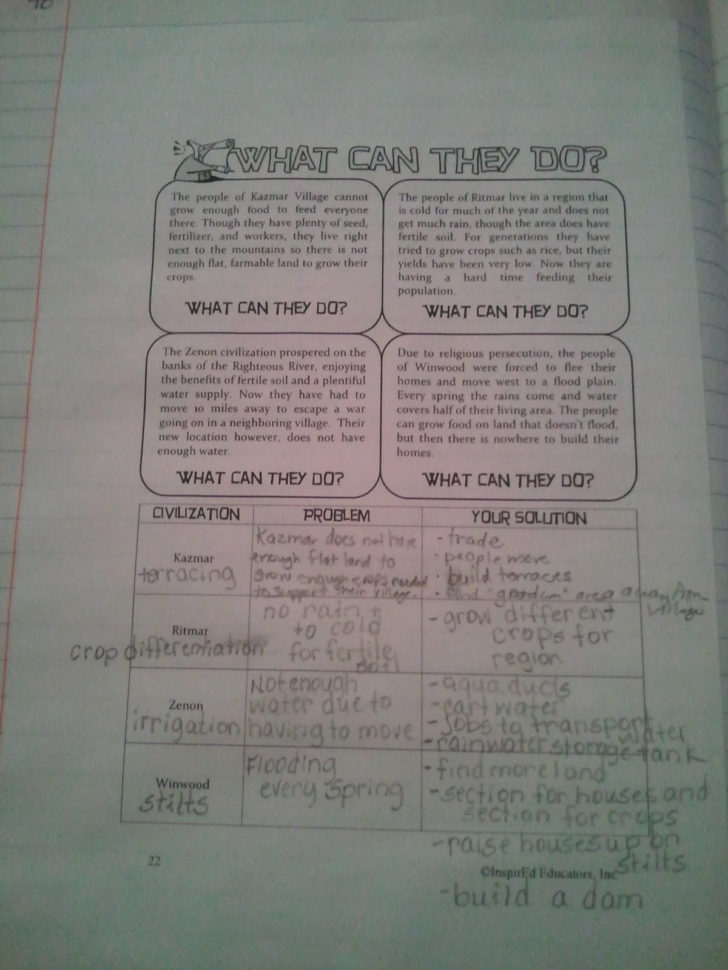 WHAT CAN THEY DO?
The people of Kazmar Village cannot
grow enough food to feed everyone
there. Though they have plenty of seed,
fertilizer, and workers, they live right
next to the mountains so there is not
enough flat, farmable land to grow their
crops.
WHAT CAN THEY DO?
The people of Ritmar live in a region that
is cold for much of the year and does not
get much rain, though the area does have
fertile soil. For generations they have
tried to grow crops such as rice, but their
yields have been very low. Now they are
having a hard time feeding their
population.
WHAT CAN THEY DO?
The Zenon civilization prospered on the
banks of the Righteous River, enjoying
the benefits of fertile soil and a plentiful
water supply. Now they have had to
move 10 miles away to escape a war
going on in a neighboring village. Their
new location however, does not have
enough water
WHAT CAN THEY DO?
Due to religious persecution, the people
of Winwood were forced to flee their
homes and move west to a flood plain.
Every spring the rains come and water
covers half of their living area. The people
can grow food on land that doesn't flood,
but then there is nowhere to build their
homes.
WHAT CAN THEY DO?
CIVILIZATION PROBLEM YOUR SOLUTION
Kazmar
terracing
Kazmar does not have
enough flat land to
grow enough crops needed
to support their village.
- trade
· people move
· build terraces
area away from
village
Ritmar
crop differentiation
no rain,
to cold
for fertile
soil
- grow different
crops for
region
Zenon
irrigation
Not enough
water due to
having to move
- aqua ducts
- cart water
- Jobs to transport
water
- rainwater storage tank
Winwood
stilts
Flooding
every spring
- find more land
- section for houses and
section for crops
- raise houses up on
stilts
- build a dam
22
©InspirEd Educators, Inc